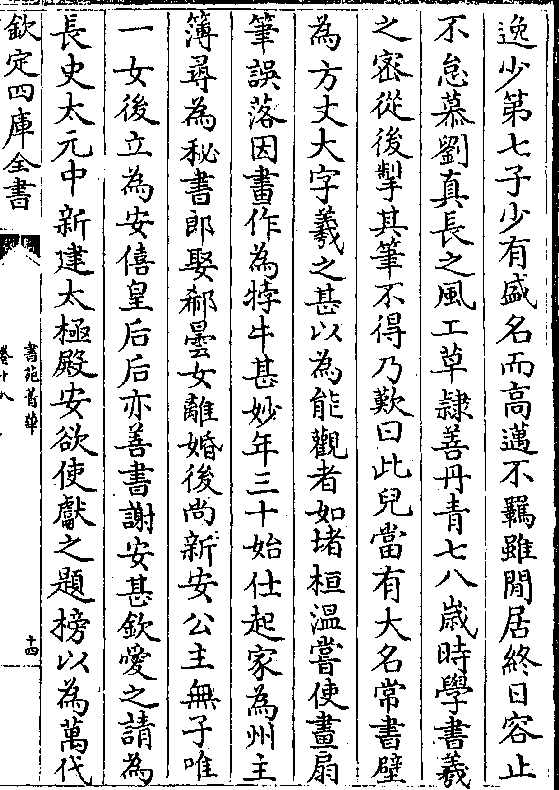 逸少第七子少有盛名而高邁不羈雖閒居終日容止
不怠慕劉真長之風工草隷善丹青七八歲時學書羲
之密從後掣其筆不得乃歎曰此兒當有大名常書壁
為方丈大字羲之甚以為能觀者如堵桓温嘗使畫扇
筆誤落因畫作為㹀牛甚妙年三十始仕起家為州主
簿尋為秘書郎娶郗曇女離婚後尚新安公主無子唯
一女後立為安僖皇后后亦善書謝安甚欽愛之請為
長史太元中新建太極殿安欲使獻之題榜以為萬代
欽定四庫全書
書苑菁華
卷十八
十四